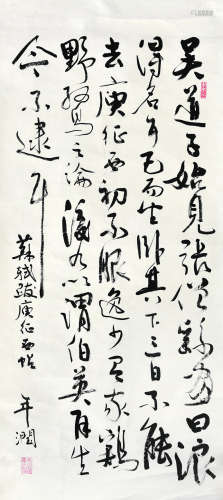 吴道子始見張僧繇畫曰浪
得名耳已而坐卧其下三日不能
去庾征西初不服逸少有家鷄
野鶩之論後乃以謂伯英再生
今不逮耳
蘇軾跋庾征西帖 年